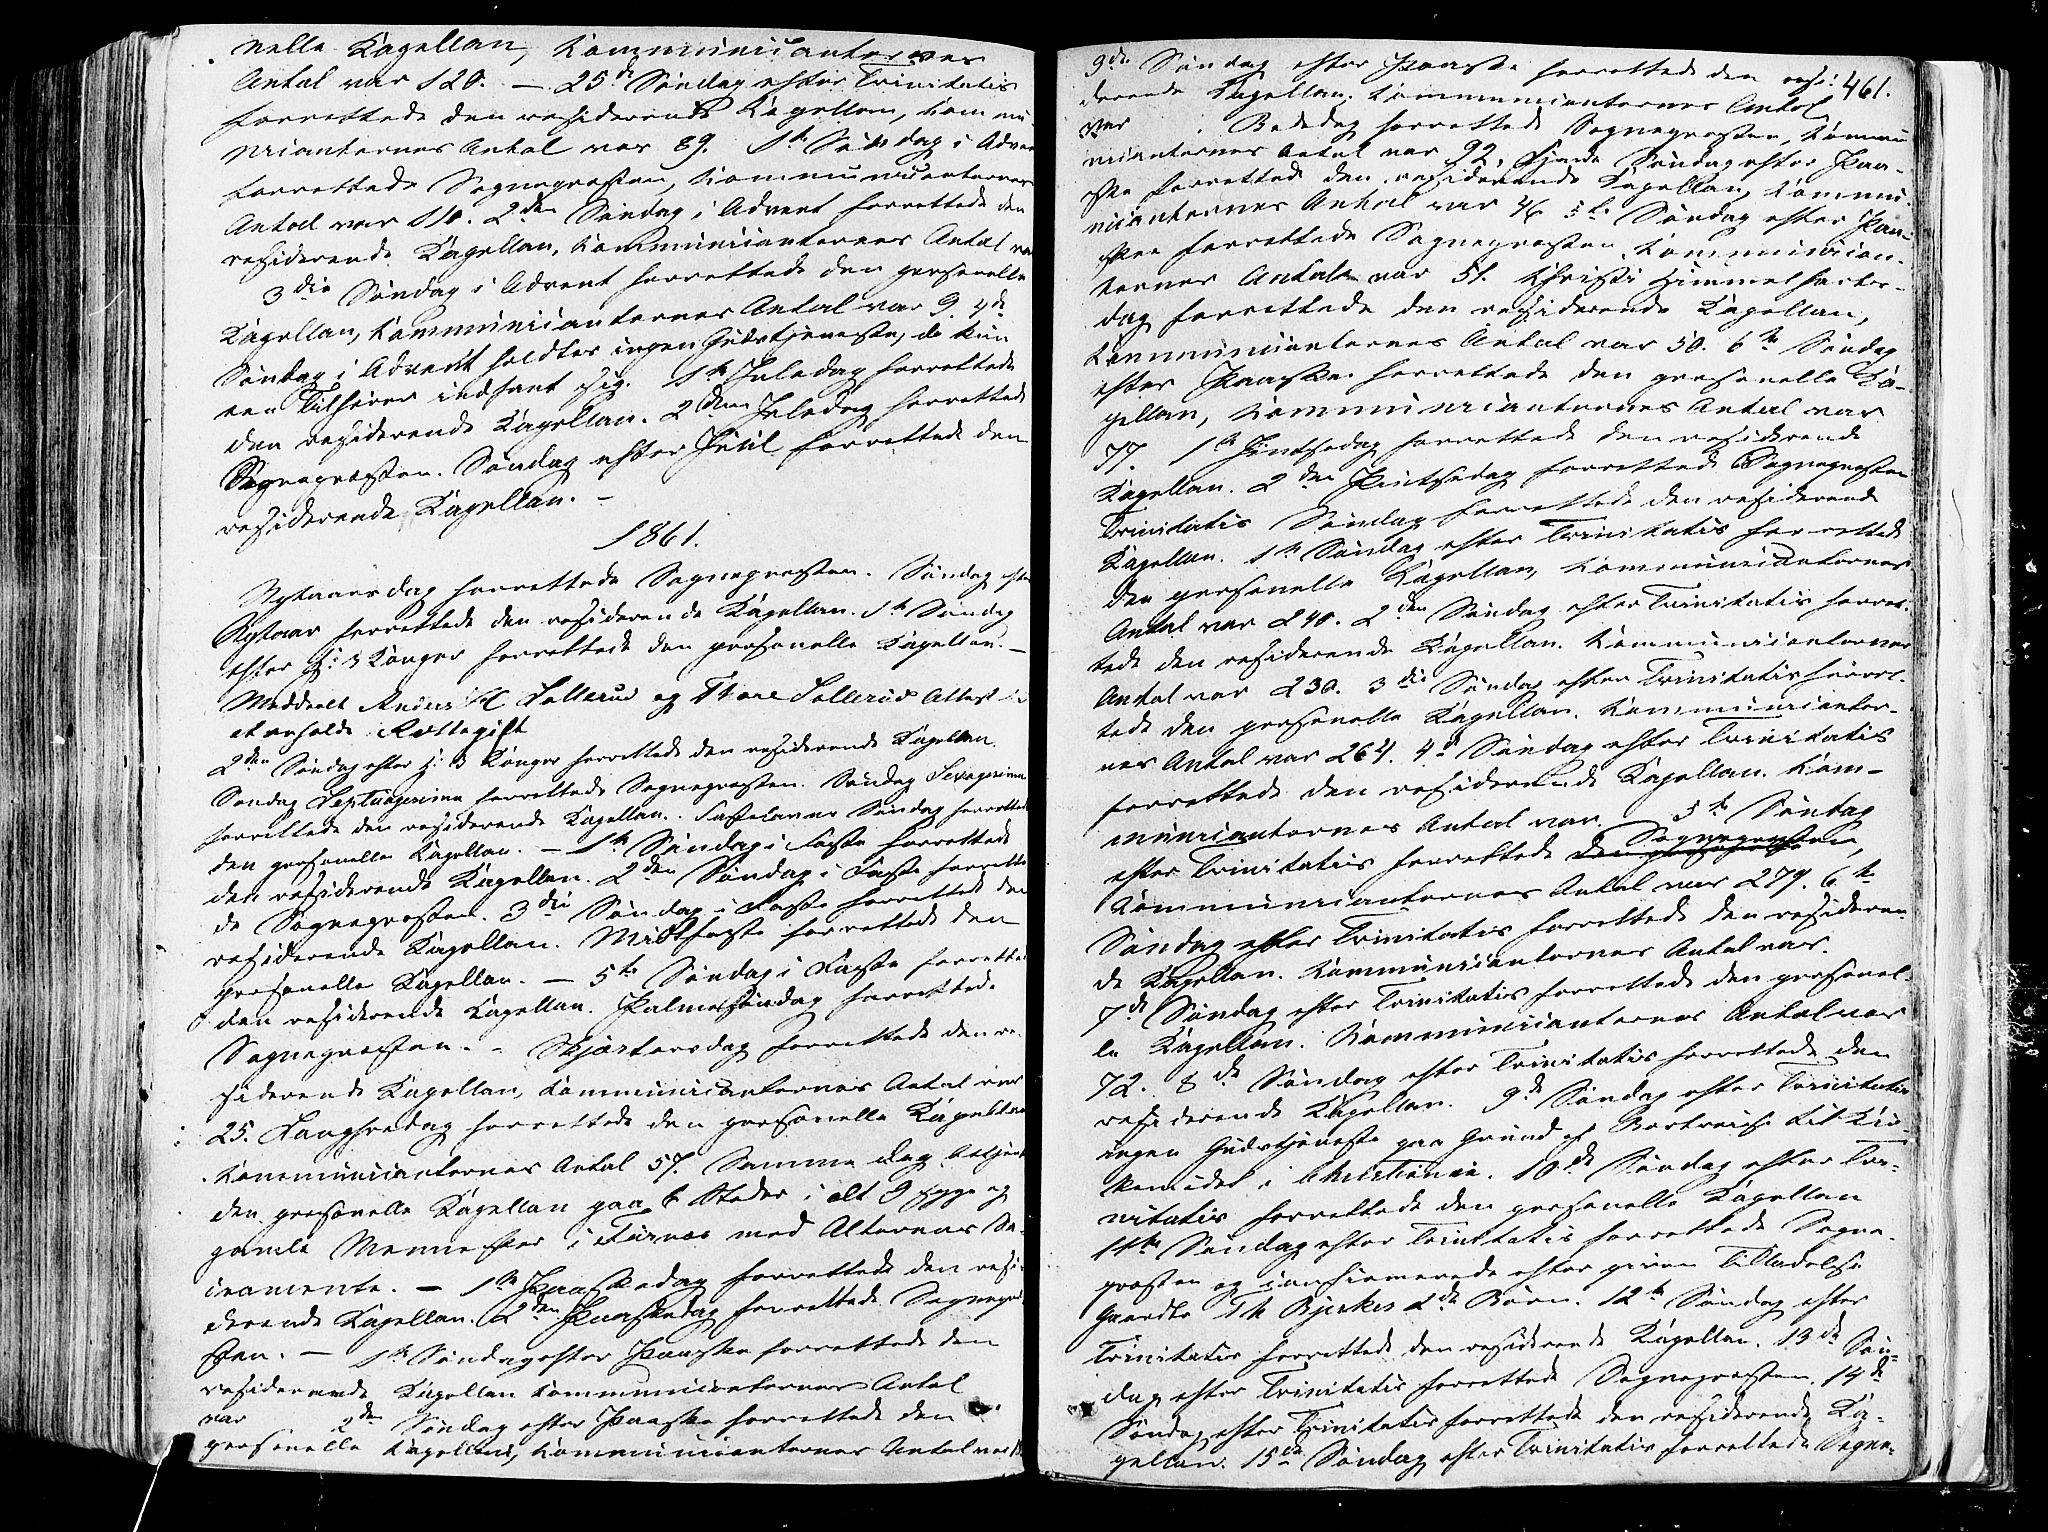 nelle Kapellan, Kommunicanternes
Antal var 120. — 25de Søndag efter Trinitatis
forrettede den residerende Kapellan, Kommu-
nicanternes Antal var 89. 1ste Søndag i Advent
forrettede Sognepræsten, Kommunicanternes
Antal var 110. 2den Søndag i Advent forrettede den
residerende Kapellan, Kommunicanternes Antal var
3die Søndag i Advent forrettede den personelle
Kapellan, Kommunicanternes Antal var 9. 4de
Søndag i Advent holdtes ingen Gudstjeneste, da kun
een Tilhører indfant sig. 1ste Juledag forrettede
den residerende Kapellan. 2den Juledag forrettede
Sognepræsten. Søndag efter Juul forrettede den
residerende Kapellan. —
1861.
Nytaarsdag forrettede Sognepræsten. Søndag efter
Nytaar forrettede den residerende Kapellan. 1ste Søndag
efter H: 3 Konger forrettede den personelle Kapellan. —
Meddeelt Anders Sollerud og Thore Sollerud Attest
at erholde Rottegift
2den Søndag efter H: 3 Konger forrettede den residerende Kapellan.
Søndag Septuagesima forrettede Sognepræsten. Søndag Sexagesima
forrettede den residerende Kapellan. Fastelavns Søndag forrettede
den personelle Kapellan. — 1ste Søndag i Faste forrettede
den residerende Kapellan. 2den Søndag i Faste forrette-
de Sognepræsten. 3die Søndag i Faste forrettede den
residerende Kapellan. Midfaste forrettede den
personelle Kapellan. — 5te Søndag i Faste forrettede
den residerende Kapellan. Palmesøndag forrettede
Sognepræsten. — Skjærtorsdag forrettede den re-
siderende Kapellan, Kommunicanternes Antal var
25. Langfredag forrettede den personelle Kapellan
Kommunicanternes Antal 57. Samme Dag betjente
den personelle Kapellan paa 6 Steder i alt 9 syge og
gamle Mennesker i Furnes med Alterens Sa-
cramente. — 1ste Paaskedag forrettede den resi-
derende Kapellan. 2den Paaskedag forrettede Sognepræ-
sten. — 1ste Søndag efter Paaske forrettede den
residerende Kapellan Kommunicanternes Antal
var 2den Søndag efter Paaske forrettede den
personelle Kapellan, Kommunicanternes Antal var
461.
3die Søndag efter Paaske forrettede den resi-
derende Kapellan. Kommunicanternes Antal
var . Bededag forrettede Sognepræsten, Kommu-
nicanternes Antal var 92. Fjerde Søndag efter Paa-
ske forrettede den residerende Kapellan, Kommu-
nicanternes Antal var 46 5te Søndag efter Paa-
ske forrettede Sognepræsten, Kommunican-
ternes Antal var 51. Christi Himmelfarts-
dag forrettede den residerende Kapellan,
Kommunicanternes Antal var 50. 6te Søndag
efter Paaske forrettede den personelle Ka-
pellan, Kommunicanternes Antal var
77. 1ste Pintsedag forrettede den residerende
Kapellan. 2den Pintsedag forrettede Sognepræsten
Trinitatis Søndag forrettede den residerende
Kapellan. 1ste Søndag efter Trinitatis forrettede
den personelle Kapellan, Kommunicanternes
Antal var 240. 2den Søndag efter Trinitatis forret-
tede den residerende Kapellan. Kommunicanternes
Antal var 230. 3die Søndag efter Trinitatis forret-
tede den personelle Kapellan. Kommunicanter-
nes Antal var 264. 4de Søndag efter Trinitatis
forrettede den residerende Kapellan. Kom-
municanternes Antal var . 5te Søndag
efter Trinitatis forrettede Sognepræsten,
Kommunicanternes Antal var 279. 6te
Søndag efter Trinitatis forrettede den resideren-
de Kapellan. Kommunicanternes Antal var.
7de Søndag efter Trinitatis forrettede den personel-
le Kapellan. Kommunicanternes Antal var
72. 8de Søndag efter Trinitatis forrettede den
residerende Kapellan. 9de Søndag efter Trinitatis
ingen Gudstjeneste paa Grund af Bortreise til Kir-
kemødet i Christiania. 10de Søndag efter Tri-
nitatis forrettede den personelle Kapellan
11te Søndag efter Trinitatis forrettede Sogne-
præsten og confirmerede efter given Tilladelse
Th Bjerkes Børn. 12te Søndag efter
Trinitatis forrettede den residerende Kapellan. 13de Søn-
dag efter Trinitatis forrettede Sognepræsten. 14de
Søndag efter Trinitatis forrettede den residerende Ka-
pellan. 15de Søndag efter Trinitatis forrettede Sogne-